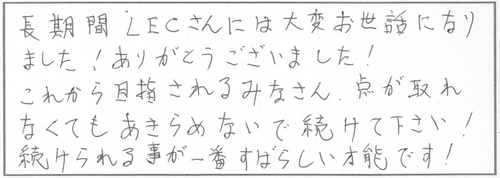 長期間LECさんには大変お世話になり
ました！ありがとうございました！
これから目指されるみなさん、点が取れ
なくてもあきらめないで続けて下さい！
続けられる事が一番すばらしい才能です！